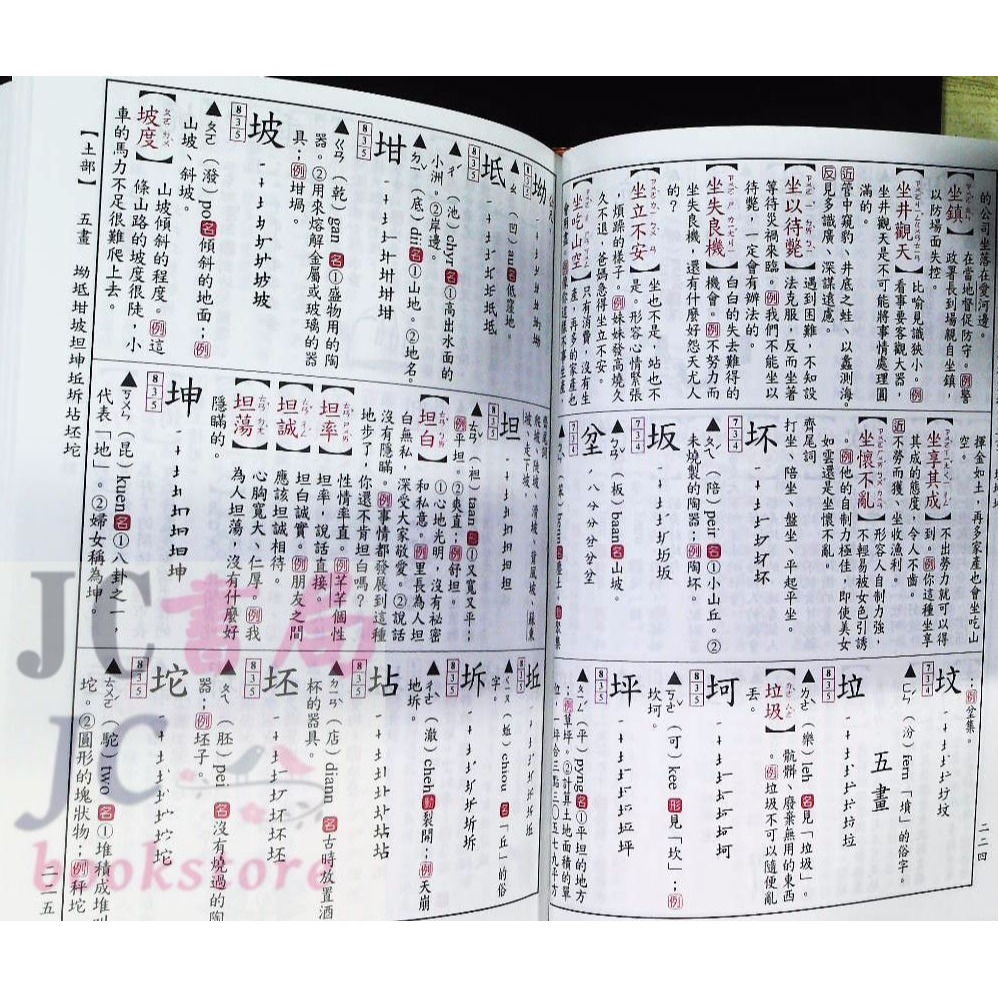 二二四
的公司坐落在愛河邊。
【坐鎮】在當地督促防守。例警
政署長到場親自坐鎮,
以防場面失控。
【坐井觀天】比喻見識狹小。例
看事要客觀大器,
坐井觀天是不可能將事情處理圓
滿的。
近管中窺豹、井底之蛙、以蠡測海。
反見多識廣、深謀遠慮。
【坐以待斃】遇到困難,不知設
法克服,反而坐著
等待災禍來臨。例我們不能坐以
待斃,一定會有辦法的。
【坐失良機】白白的失去難得的
機會。例不努力而
坐失良機,還有什麼好怨天尤人
的?
【坐立不安】坐也不是,站也不
是。形容心情緊張
、煩躁的樣子。例妹妹發高燒久
久不退,爸媽急得坐立不安。
【坐吃山空】只有消費,沒有生
揮金如土,再多家產也會坐吃山
空。
【坐享其成】不出勞力就可以得
到。例你這種坐享
其成的態度,令人不齒。
近不勞而獲、坐收漁利。
【坐懷不亂】形容人自制力強,
不輕易被女色引誘
。例他的自制力極佳,即使美女
如雲還是坐懷不亂。
齊尾詞
打坐、陪坐、盤坐、平起平坐。
坏 734
▲ㄆㄟˊ(陪)peir 名①小山丘。②
未燒製的陶器;例陶坏。
坂 734
▲ㄅㄢˇ(板)baan 名山坡。
坌 734
;例坌集。
坟 734
▲ㄈㄣˊ(汾)fern「墳」的俗字。
五畫
垃 835
▲ㄌㄜˋ(樂)leh 名見「垃圾」。
【垃圾】骯髒、廢棄無用的東西
。例垃圾不可以隨便亂
丟。
坷 835
▲ㄎㄜˇ(可)kee 形見「坎」;例
坎坷。
坪 835
▲ㄆㄧㄥˊ(平)pyng 名①平坦的地方
;例草坪。②計算土地面積的單
位,一坪合三點三〇五七九平方
【土部】 五畫 坳坻坩坡坦坤坵坼坫坯坨
二二五
坳 835
▲ㄠ(凹)au 名低窪地。
坻 835
▲ㄔˊ(池)chyr 名①高出水面的
小洲。②岸邊。
▲ㄉㄧˇ(底)dii 名①山地。②地名。
坩 835
▲ㄍㄢ(乾)gan 名①盛物用的陶
器。②用來熔解金屬或玻璃的器
具;例坩堝。
坡 835
▲ㄆㄛ(潑)po 名傾斜的地面;例
山坡、斜坡。
【坡度】山坡傾斜的程度。例這
條山路的坡度很陡,小
車的馬力不足很難爬上去。
爬坡、陡坡、滑坡、背風坡、蘇東
坡、走下坡。
坦 835
▲ㄊㄢˇ(袒)taan 形①又寬又平;
例平坦。②爽直;例舒坦。
【坦白】①心地光明,沒有秘密
和私意。例里長為人坦
白無私,深受大家敬愛。②說話
沒有隱瞞。例事情都發展到這種
地步了,你還不肯坦白嗎?
【坦率】性情率直。例芊芊個性
坦率,說話直接。
【坦誠】坦白誠實。例朋友之間
應該坦誠相待。
【坦蕩】心胸寬大、仁厚。例我
為人坦蕩,沒有什麼好
隱瞞的。
坤 835
▲ㄎㄨㄣ(昆)kuen 名①八卦之一,
代表「地」。②婦女稱為坤。
坵 835
▲ㄑㄧㄡ(蚯)chiou 名「丘」的俗
字。
坼 835
▲ㄔㄜˋ(澈)cheh 動裂開;例天崩
地坼。
坫 835
▲ㄉㄧㄢˋ(店)diann 名古時放置酒
杯的器具。
坯 835
▲ㄆㄟ(胚)pei 名沒有燒過的陶
器;例坯子。
坨 835
▲ㄊㄨㄛˊ(駝)two 名①堆積成堆
坨。②圓形的塊狀物;例秤坨
JC書局
JC
bookstore